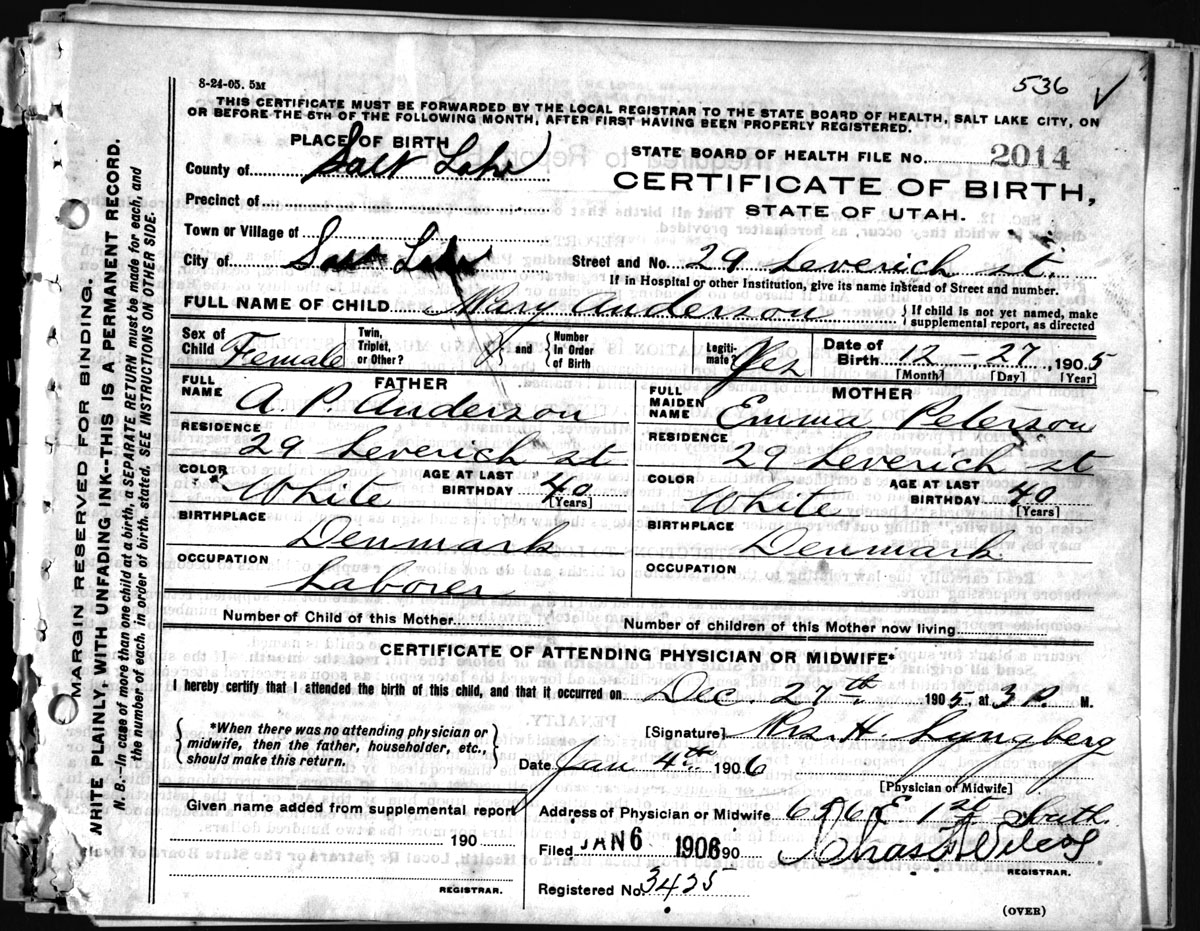 8-24-05. 5M
536 V
THIS CERTIFICATE MUST BE FORWARDED BY THE LOCAL REGISTRAR TO THE STATE BOARD OF HEALTH, SALT LAKE CITY, ON
OR BEFORE THE 5TH OF THE FOLLOWING MONTH, AFTER FIRST HAVING BEEN PROPERLY REGISTERED.
PLACE OF BIRTH
STATE BOARD OF HEALTH FILE NO. 2014
County of Salt Lake
CERTIFICATE OF BIRTH,
Precinct of
STATE OF UTAH.
Town or Village of
City of Salt Lake Street and No. 29 Leverich st.
If in Hospital or other Institution, give its name instead of Street and number.
FULL NAME OF CHILD Mary Anderson } If child is not yet named, make supplemental report, as directed
Sex of Child Female Twin, Triplet, or Other? } and { Number In Order of Birth Legiti-mate? Yes Date of Birth 12 - 27, 1905
[Month] [Day] [Year]
FATHER
FULL NAME A. P. Anderson
RESIDENCE 29 Leverich st
COLOR White AGE AT LAST BIRTHDAY 40 [Years]
BIRTHPLACE Denmark
OCCUPATION Laborer
MOTHER
FULL MAIDEN NAME Emma Peterson
RESIDENCE 29 Leverich st
COLOR White AGE AT LAST BIRTHDAY 40 [Years]
BIRTHPLACE Denmark
OCCUPATION
Number of Child of this Mother Number of children of this Mother now living
CERTIFICATE OF ATTENDING PHYSICIAN OR MIDWIFE*
I hereby certify that I attended the birth of this child, and that it occurred on Dec. 27th 1905, at 3 P. M.
{ *When there was no attending physician or
midwife, then the father, householder, etc.,
should make this return. }
[Signature] Mrs. H. Lyngberg
Date Jan 4th 1906
[Physician or Midwife]
Given name added from supplemental report
190
REGISTRAR.
Address of Physician or Midwife 626 E 1st South.
Filed JAN 6 1906 90 Chas. Wilcox
REGISTRAR.
Registered No. 3425
(OVER)
MARGIN RESERVED FOR BINDING.
WRITE PLAINLY, WITH UNFADING INK--THIS IS A PERMANENT RECORD.
N. B.--In case of more than one child at a birth, a SEPARATE RETURN must be made for each, and
the number of each, in order of birth, stated. SEE INSTRUCTIONS ON OTHER SIDE.